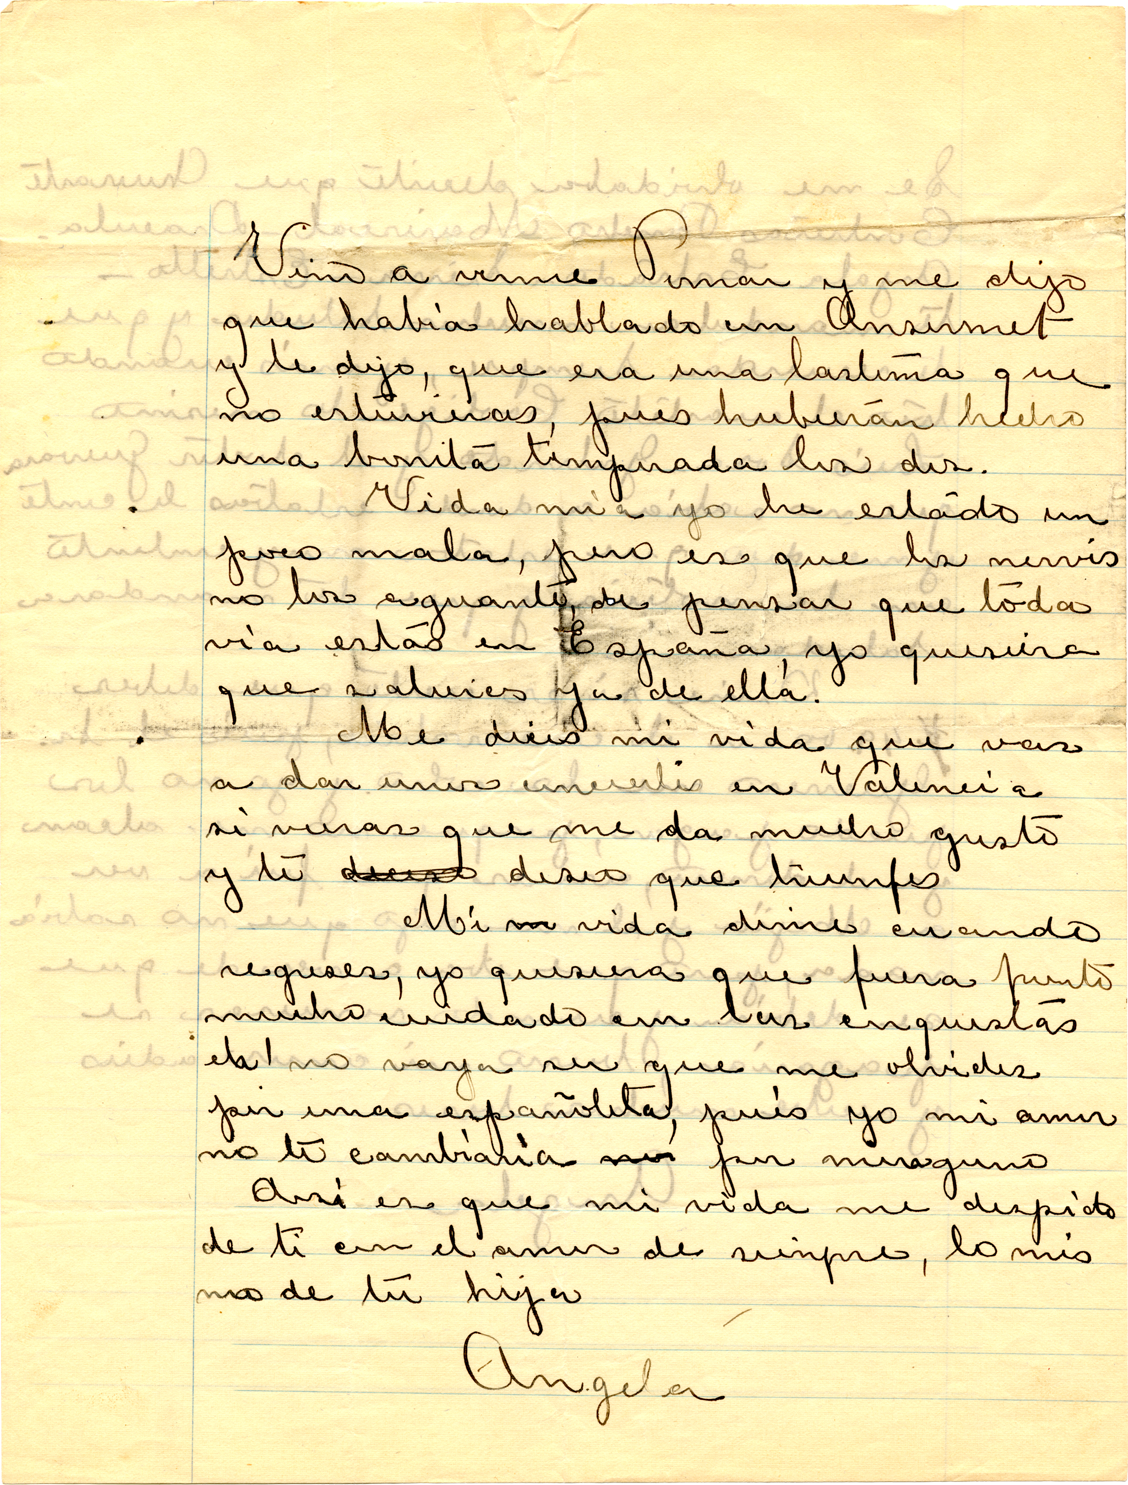 Vino a verme Pomar y me dijo
que había hablado con Ansermet
y te dijo, que era una lastima que
no estuvieras, pues hubierán hecho
una bonita temporada los dos.
Vida mia yo he estado un
poco mala, pero es que los nervios
no los aguanto, de pensar que toda
vía estás en España, yo quisiera
que salieras ya de ellá.
Me dices mi vida que vas
a dar unos conciertos en Valencia
si vieras que me da mucho gusto
y te deseo deseo que triunfes
Mi m vida dime cuando
regreses, yo quisiera que fuera pronto
mucho cuidado con las conquistas
eh! no vaya ser que me olvides
por una españolita, pués yo mi amor
no te cambiaria por ninguno
Así es que mi vida me despido
de ti con el amor de siempre, lo mis
mo de tú hija
Angela